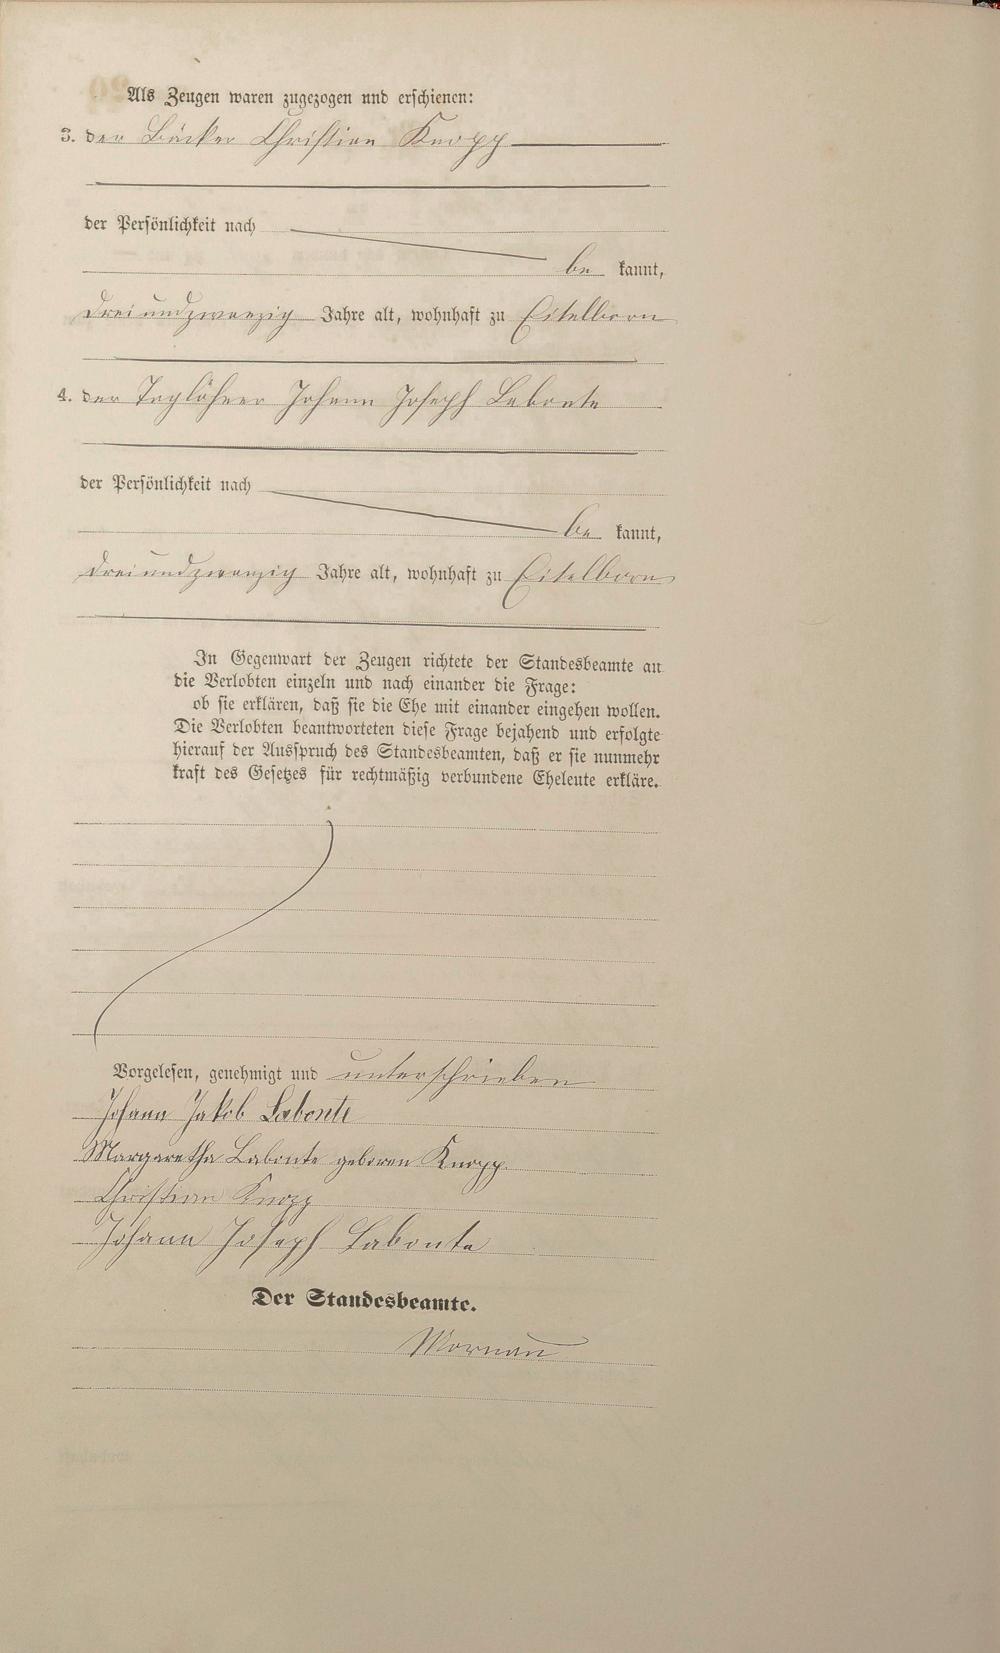 Als Zeugen waren zugezogen und erschienen:
3. der Bäcker Christian Knopp
der Persönlichkeit nach
be kannt,
dreiundzwanzig Jahre alt, wohnhaft zu Eitelborn
4. der Taglöhner Johann Joseph Labonte
der Persönlichkeit nach
be kannt,
dreiundzwanzig Jahre alt, wohnhaft zu Eitelborn
In Gegenwart der Zeugen richtete der Standesbeamte an
die Verlobten einzeln und nach einander die Frage:
ob sie erklären, daß sie die Ehe mit einander eingehen wollen.
Die Verlobten beantworteten diese Frage bejahend und erfolgte
hierauf der Ausspruch des Standesbeamten, daß er sie nunmehr
kraft des Gesetzes für rechtmäßig verbundene Eheleute erkläre.
Vorgelesen, genehmigt und unterschrieben
Johann Jakob Labonte
Margaretha Labonte geboren Knopp.
Christian Knopp
Johann Joseph Labonte
Der Standesbeamte.